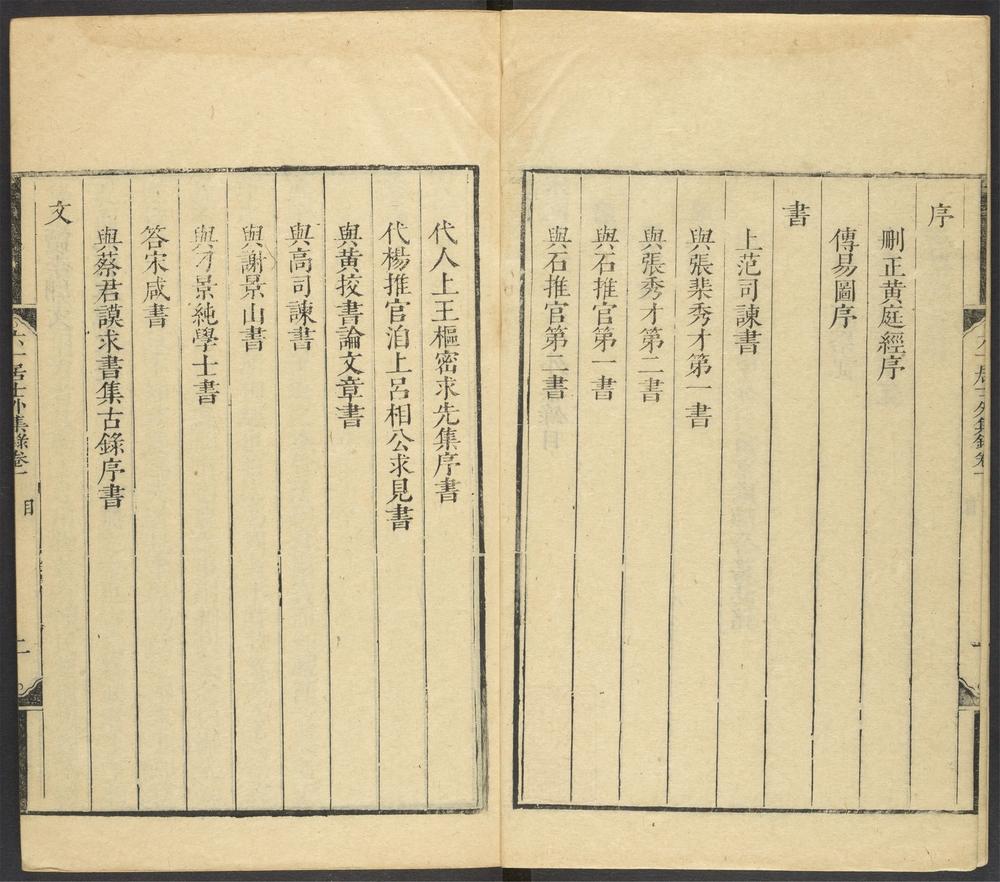 序
刪正黄庭經序
傳易圖序
書
上范司諫書
與張棐秀才第一書
與張秀才第二書
與石推官第一書
與石推官第二書
六一居士外集錄卷一
代人上王樞密求先集序書
代楊推官洎上呂相公求見書
與黄挍書論文章書
與高司諫書
與謝景山書
與刁景純學士書
答宋咸書
與蔡君謨求書集古錄序書
文
六一居士外集錄卷一
目
二